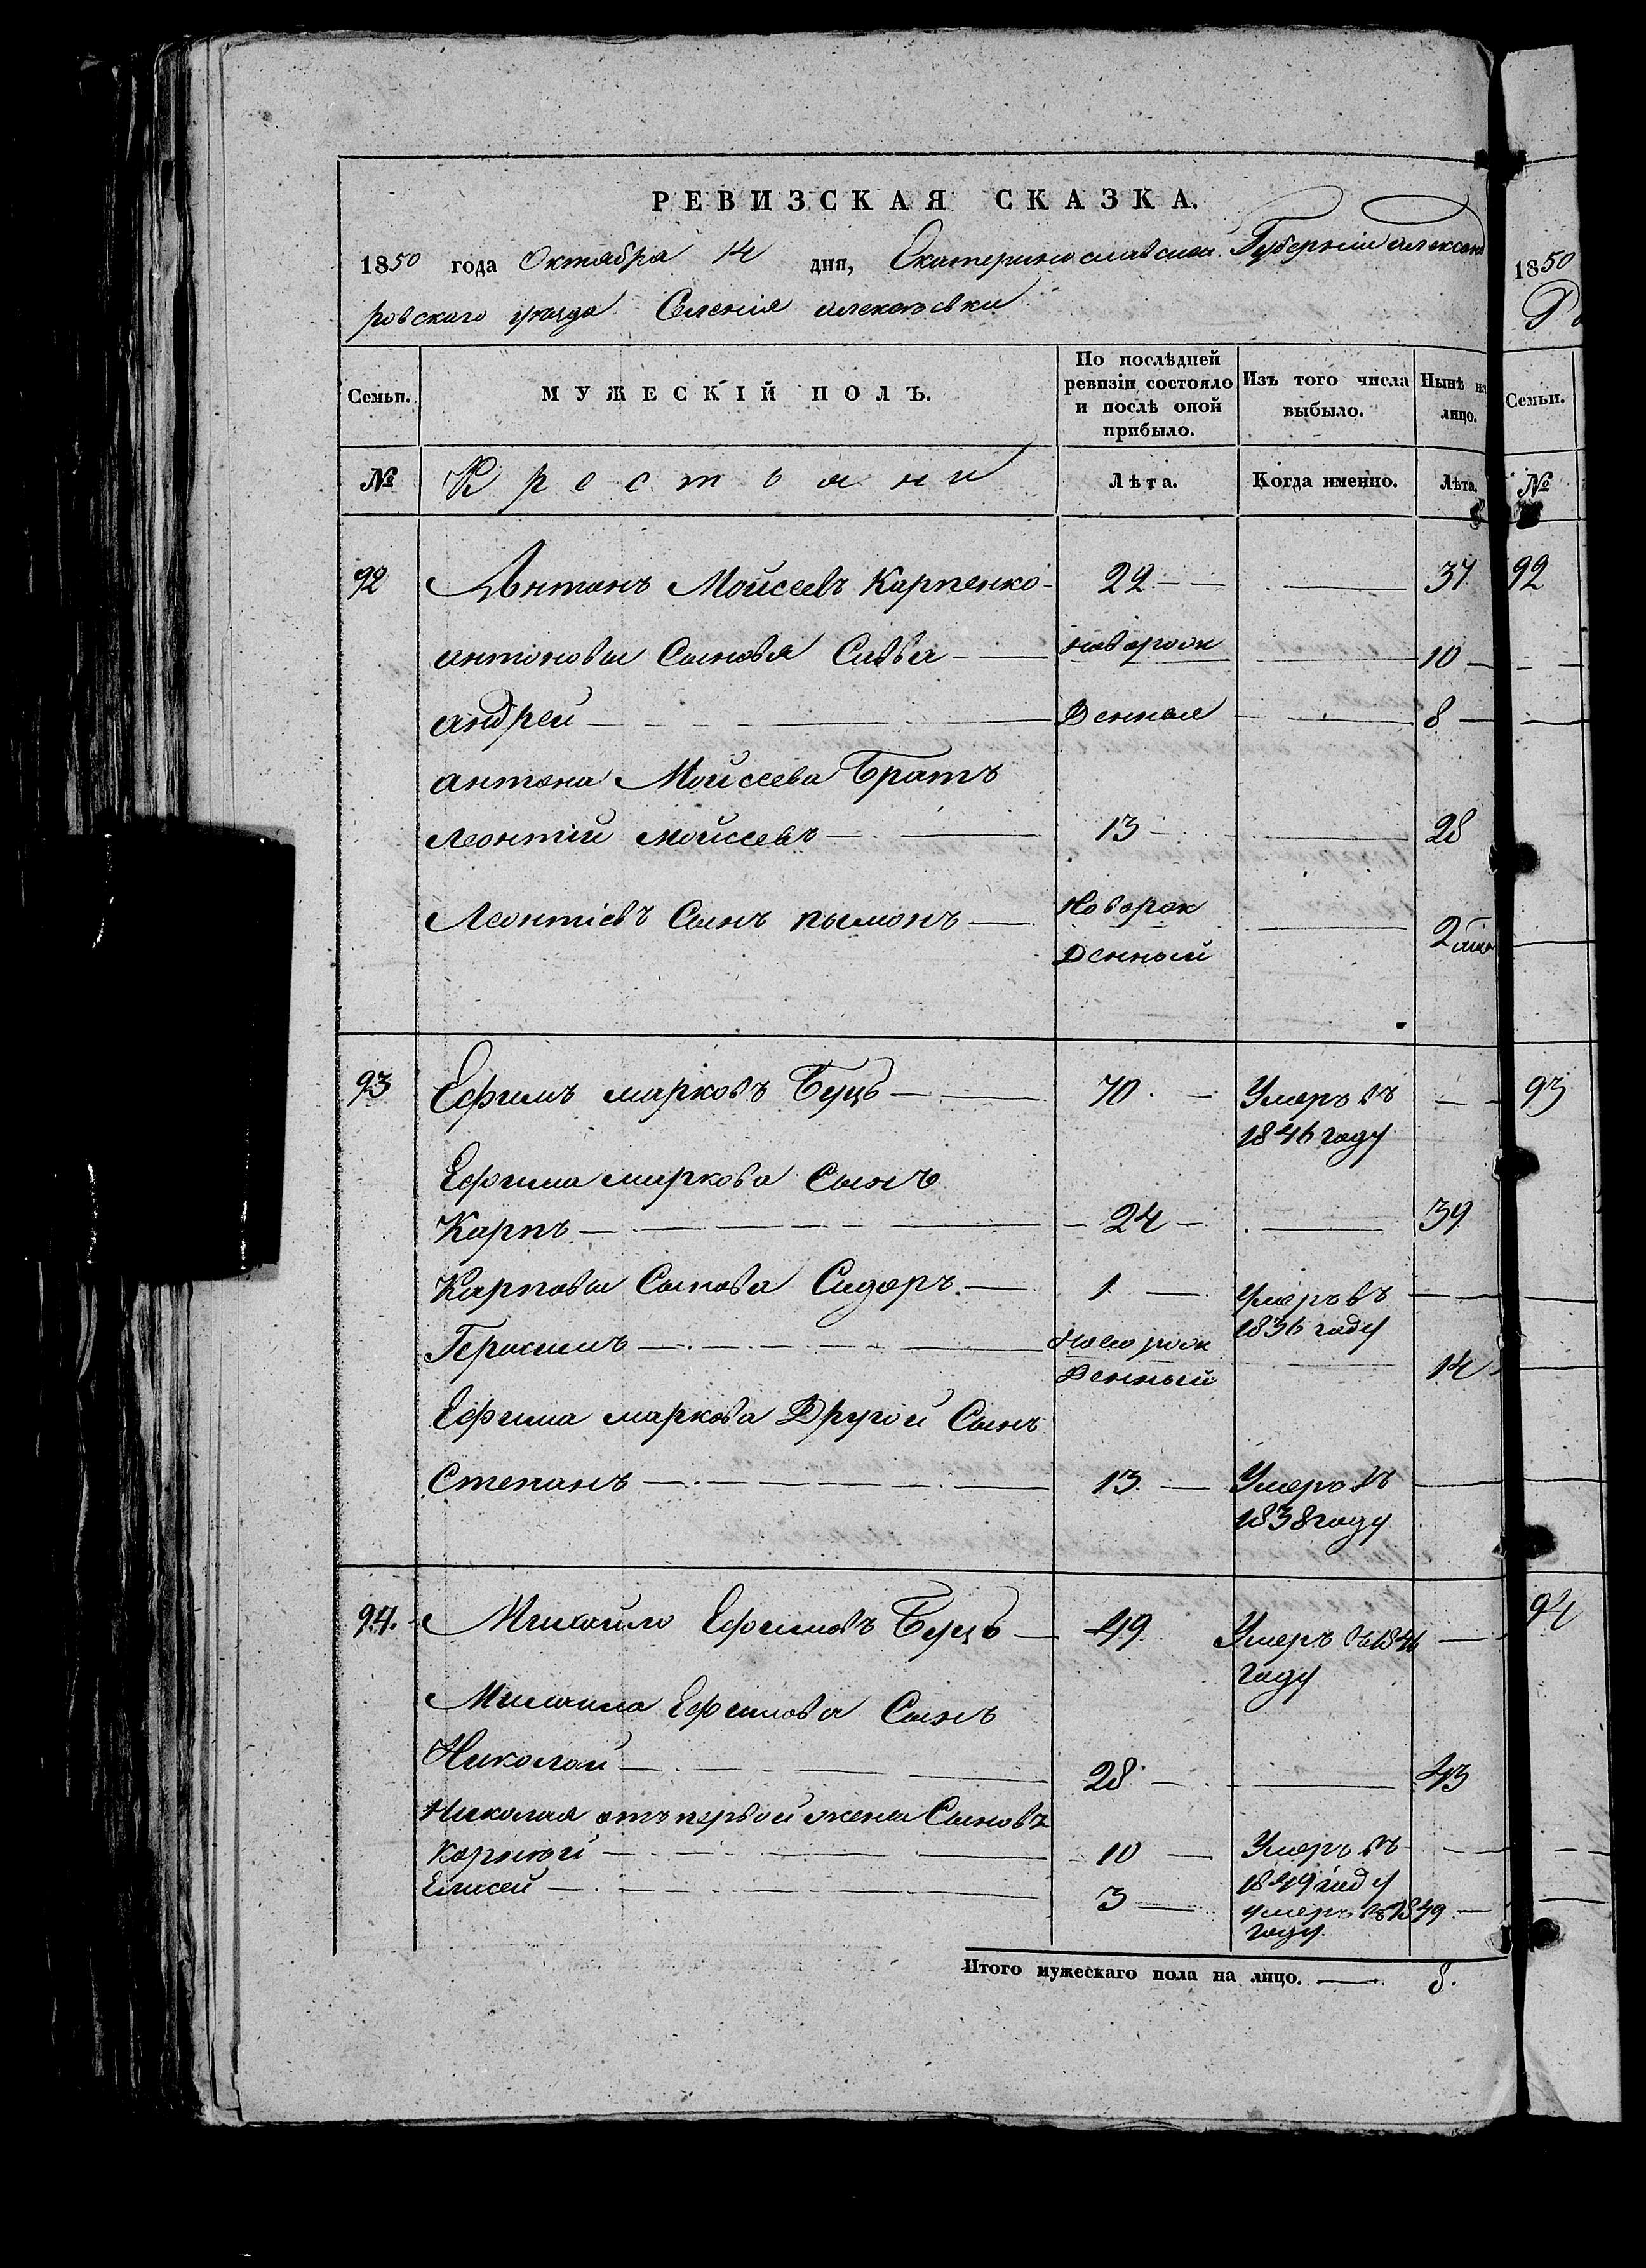 РЕВИЗСКАЯ СКАЗКА.
1850 года Октября 14 дня, Екатеринославской Губернии Александ
ровского уезда Селения Алексеевки
Семьи. МУЖЕСКІЙ ПОЛЪ. По послѣдней ревизіи состояло и послѣ оной прибыло. Изъ того числа выбыло. Нынѣ на лицо.
№ Крестьяни Лѣта. Когда именно. Лѣта.
92 Антонъ Мойсеевъ Карпенко 22 — — 37
Антоновы Сыновья Савва — новорож — 10
Андрей — денные — 8
Антона Мойсеева Братъ
Леонтий Мойсеевъ — 13 — 28
Леонтіевъ Сынъ Пымонъ — Новорож — 2
денный
93 Ефимъ Марковъ Буцъ — 70 — Умеръ въ —
1846 году
Ефима Маркова Сынъ
Карпъ — 24 — — 39
Карповы Сынова Сидоръ — 1 — Умеръ въ —
1836 году
Герасимъ — Новорож — 14
денный
Ефима Маркова Другой Сынъ
Степанъ — 13 — Умеръ въ —
1838 году
94. Михайло Ефимовъ Буцъ — 49 Умеръ въ 1846 —
году
Михаила Ефимова Сынъ
Николай — 28 — — 43
Николая отъ первой жены Сыновъ
Корней — 10 — Умеръ въ —
1849 году
Елисей — 3 — умеръ въ 1849 —
году
Итого мужескаго пола на лицо. — 8.
1850
Семьи.
№
92
93
94